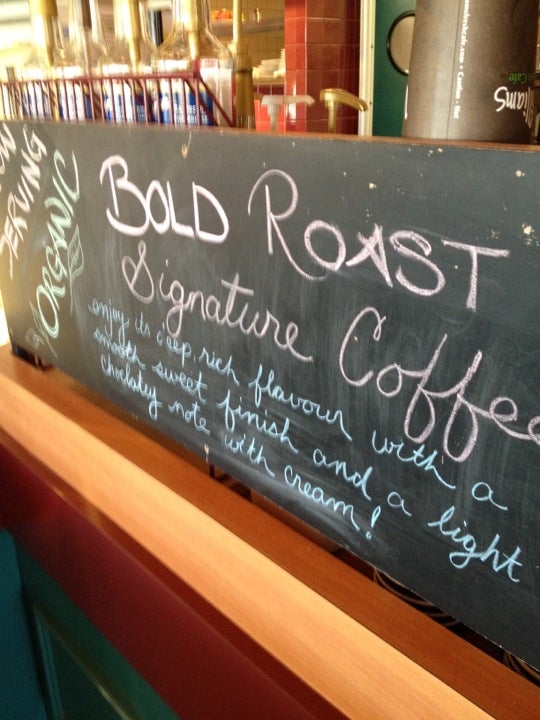 NOW
SERVING
ORGANIC
BOLD ROAST
Signature Coffee
enjoy its deep, rich flavour with a
smooth sweet finish and a light
choclatey note with cream!